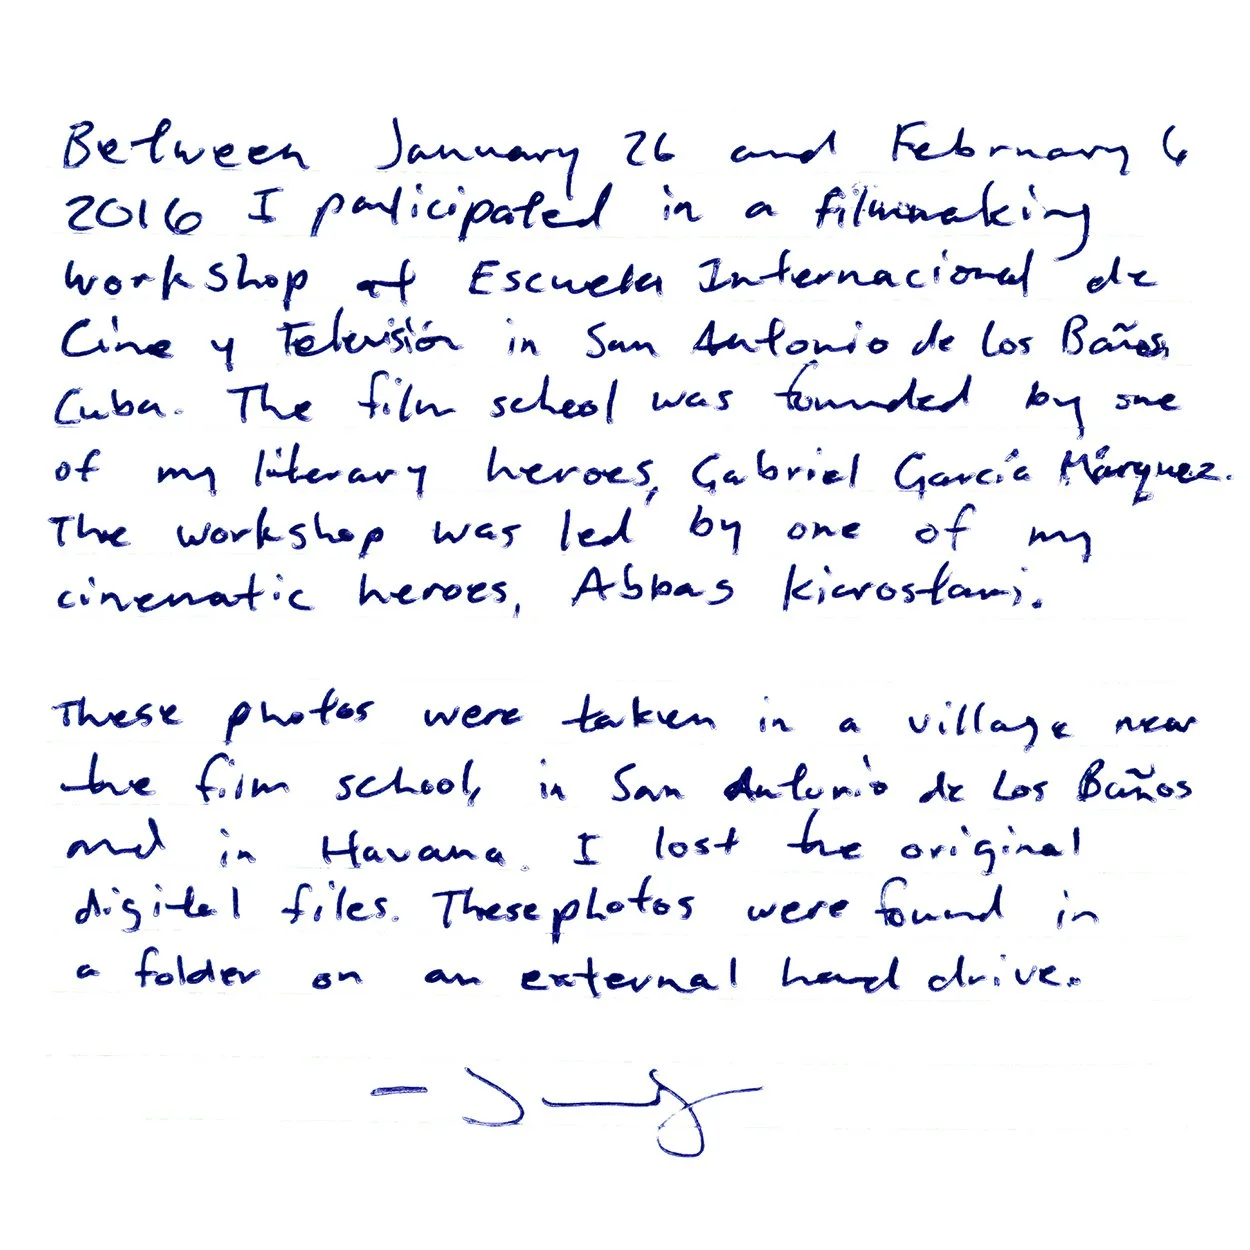 Between January 26 and February 6
2016 I participated in a filmmaking
workshop at Escuela Internacional de
Cine y Televisión in San Antonio de Los Baños
Cuba. The film school was founded by one
of my literary heroes, Gabriel García Márquez.
The workshop was led by one of my
cinematic heroes, Abbas Kiarostami.
These photos were taken in a village near
the film school, in San Antonio de Los Baños
and in Havana. I lost the original
digital files. These photos were found in
a folder on an external hard drive.